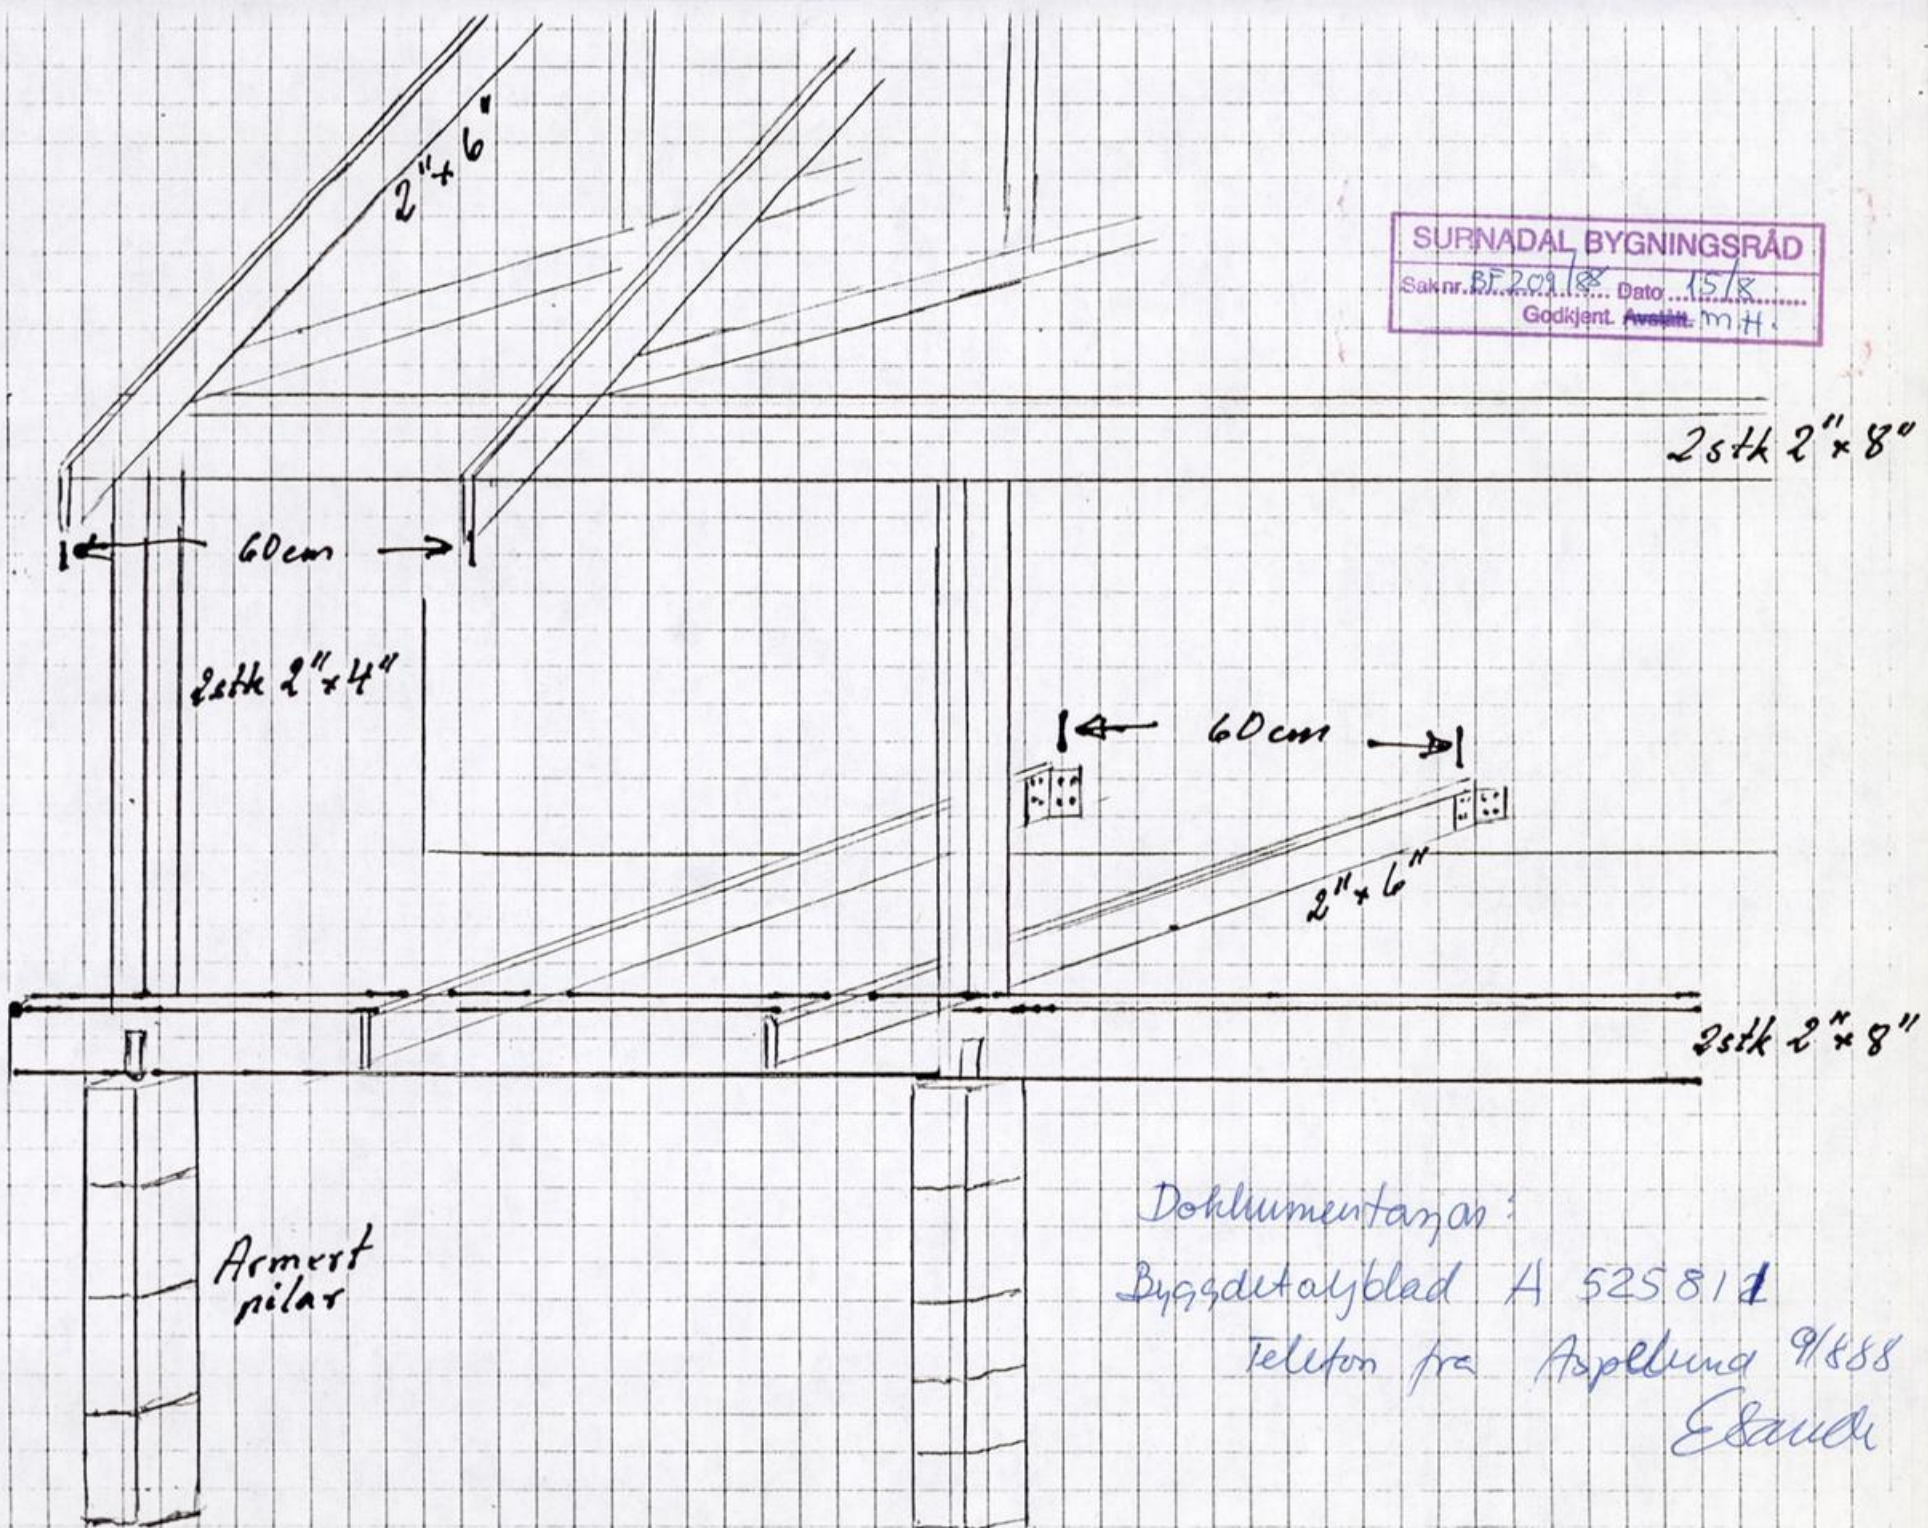 2"x 6"
SURNADAL BYGNINGSRÅD
Sak nr. BF 209/88 Dato 15/8
Godkjent. Avslått. M.H.
2stk 2"x 8"
60cm
2stk 2"x 4"
60cm
2"x 6"
2stk 2"x 8"
Armert
pilar
Dokkumentasjon:
Byggdetaljblad A 525811
Telefon fra Aspelund 9/888